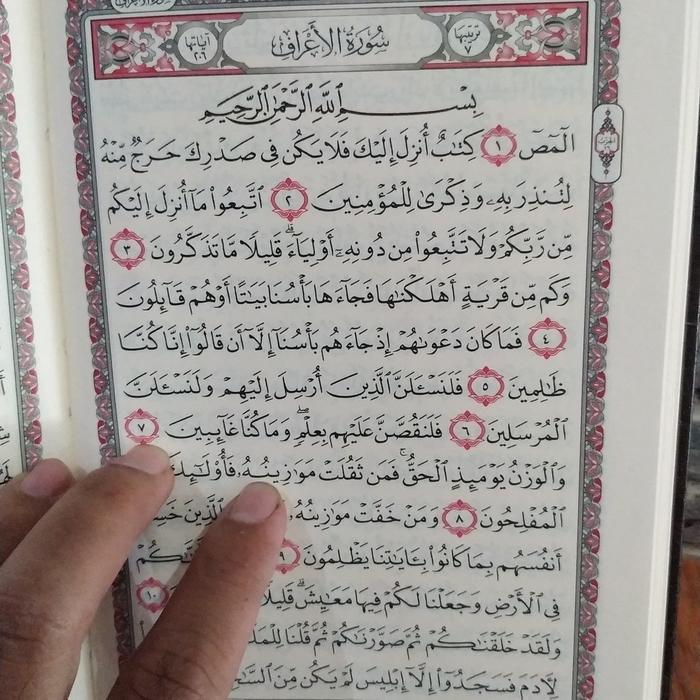 ترتيبها ٧
سُورَةُ الأَعْرَافِ
آياتها ٢٠٦
بِسْمِ ٱللَّهِ ٱلرَّحْمَٰنِ ٱلرَّحِيمِ
الٓمٓصٓ ١ كِتَٰبٌ أُنزِلَ إِلَيْكَ فَلَا يَكُن فِى صَدْرِكَ حَرَجٌ مِّنْهُ
لِتُنذِرَ بِهِۦ وَذِكْرَىٰ لِلْمُؤْمِنِينَ ٢ ٱتَّبِعُوا۟ مَآ أُنزِلَ إِلَيْكُم
مِّن رَّبِّكُمْ وَلَا تَتَّبِعُوا۟ مِن دُونِهِۦٓ أَوْلِيَآءَ ۗ قَلِيلًا مَّا تَذَكَّرُونَ ٣
وَكَم مِّن قَرْيَةٍ أَهْلَكْنَٰهَا فَجَآءَهَا بَأْسُنَا بَيَٰتًا أَوْ هُمْ قَآئِلُونَ
٤ فَمَا كَانَ دَعْوَىٰهُمْ إِذْ جَآءَهُم بَأْسُنَآ إِلَّآ أَن قَالُوٓا۟ إِنَّا كُنَّا
ظَٰلِمِينَ ٥ فَلَنَسْـَٔلَنَّ ٱلَّذِينَ أُرْسِلَ إِلَيْهِمْ وَلَنَسْـَٔلَنَّ
ٱلْمُرْسَلِينَ ٦ فَلَنَقُصَّنَّ عَلَيْهِم بِعِلْمٍ ۖ وَمَا كُنَّا غَآئِبِينَ ٧
وَٱلْوَزْنُ يَوْمَئِذٍ ٱلْحَقُّ ۚ فَمَن ثَقُلَتْ مَوَٰزِينُهُۥ فَأُو۟لَٰٓئِكَ
ٱلْمُفْلِحُونَ ٨ وَمَنْ خَفَّتْ مَوَٰزِينُهُۥ ٱلَّذِينَ
أَنفُسَهُم بِمَا كَانُوا۟ بِـَٔايَٰتِنَا يَظْلِمُونَ ٩
فِى ٱلْأَرْضِ وَجَعَلْنَا لَكُمْ فِيهَا مَعَٰيِشَ ۗ قَلِيلًا ١٠
وَلَقَدْ خَلَقْنَٰكُمْ ثُمَّ صَوَّرْنَٰكُمْ ثُمَّ قُلْنَا
لِءَادَمَ فَسَجَدُوٓا۟ إِلَّآ إِبْلِيسَ لَمْ يَكُن مِّنَ